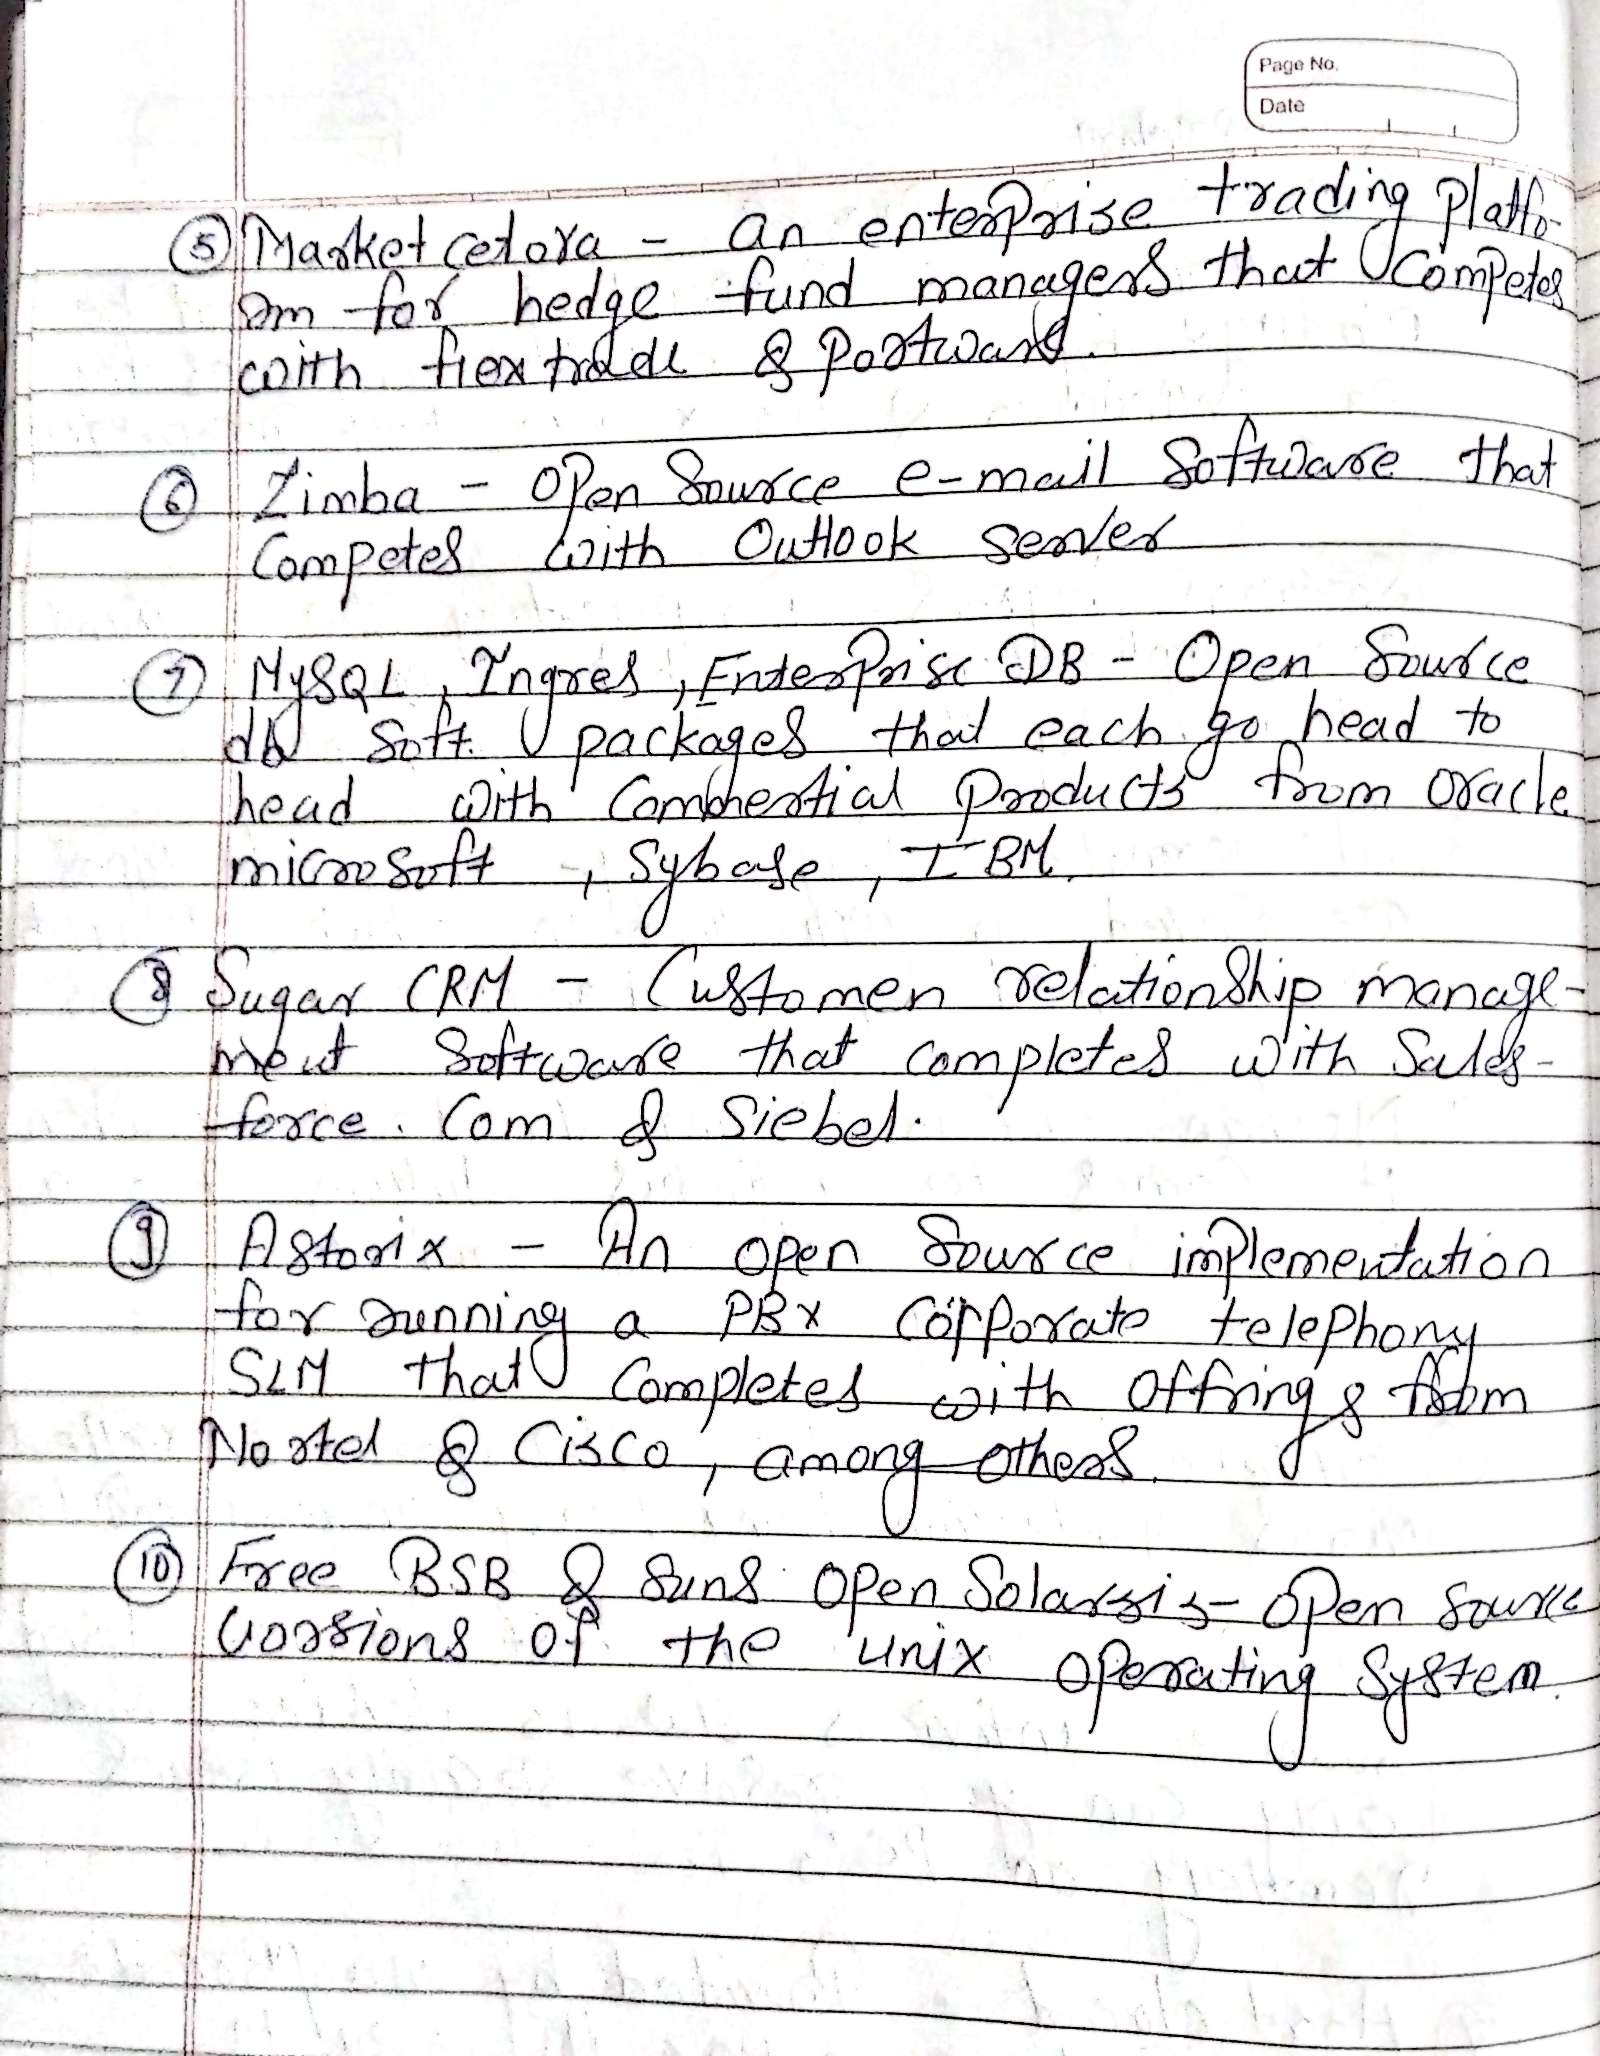 Page No.
Date
⑤ Marketcetora - an enterprise trading Platfo-
rm for hedge fund managers that Competes
with flextrade & Portware.
⑥ Zimba - Open Source e-mail Software that
Competes with Outlook server
⑦ MySQL, Ingres, Enterprise DB - Open Source
db soft. packages that each go head to
head with Commertial Products from Oracle
microsoft, Sybase, IBM.
⑧ Sugar CRM - Customen relationship manage-
ment Software that completes with Sales-
force. Com & Siebel.
⑨ Astorix - An open Source implementation
for running a PBX Corporate telephony
SLM that Completes with Offrings from
Nortel & Cisco, among others.
⑩ Free BSB & Suns Open Solarsis- Open Source
Vorsions of the unix operating System.